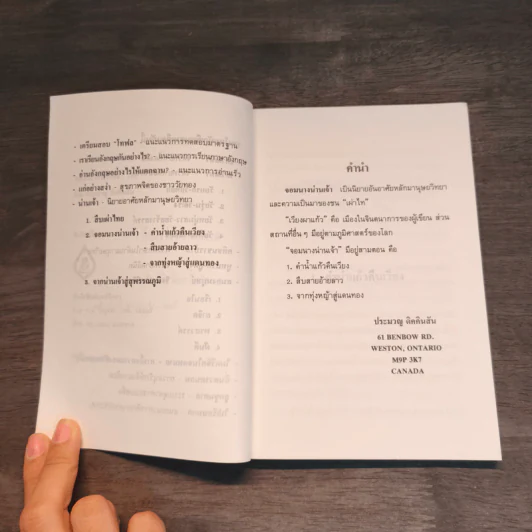 - เตรียมสอบ "โทเฟล" - แนะแนวการทดสอบมาตรฐาน
- เราเรียนอังกฤษกันอย่างไร? - แนะแนวการเรียนภาษาอังกฤษ
- อ่านอังกฤษอย่างไรให้แตกฉาน? - แนะแนวการอ่านเร็ว
- แก่อย่างสง่า - สุขภาพจิตของชาววัยทอง
- น่านเจ้า - นิยายอาศัยหลักมานุษยวิทยา
1. สิบเผ่าไทย
2. จอมนางน่านเจ้า - คำน้ำแก้วคืนเวียง
- สืบสายอ้ายลาว
- จากทุ่งหญ้าสู่แดนทอง
3. จากน่านเจ้าสู่สุพรรณภูมิ
คำนำ
จอมนางน่านเจ้า เป็นนิยายอันอาศัยหลักมานุษยวิทยา
และความเป็นมาของชน "เผ่าไท"
"เวียงผาแก้ว" คือ เมืองในจินตนาการของผู้เขียน ส่วน
สถานที่อื่น ๆ มีอยู่ตามภูมิศาสตร์ของโลก
"จอมนางน่านเจ้า" มีอยู่สามตอน คือ
1. คำน้ำแก้วคืนเวียง
2. สืบสายอ้ายลาว
3. จากทุ่งหญ้าสู่แดนทอง
ประมวญ
61 BENBOW RD.
WESTON, ONTARIO
M9P 3K7
CANADA